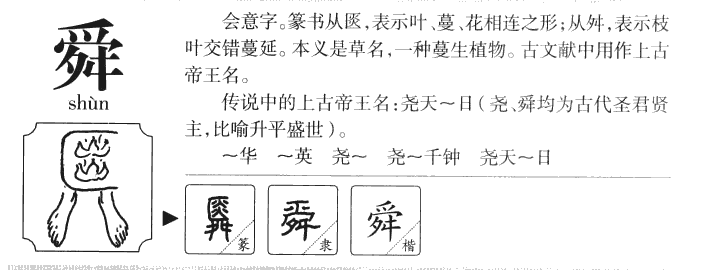 舜
shùn
会意字。篆书从匧,表示叶、蔓、花相连之形;从舛,表示枝
叶交错蔓延。本义是草名,一种蔓生植物。古文献中用作上古
帝王名。
传说中的上古帝王名:尧天～日(尧、舜均为古代圣君贤
主,比喻升平盛世)。
～华 ～英 尧～ 尧～千钟 尧天～日
舜 篆 舜 隶 舜 楷